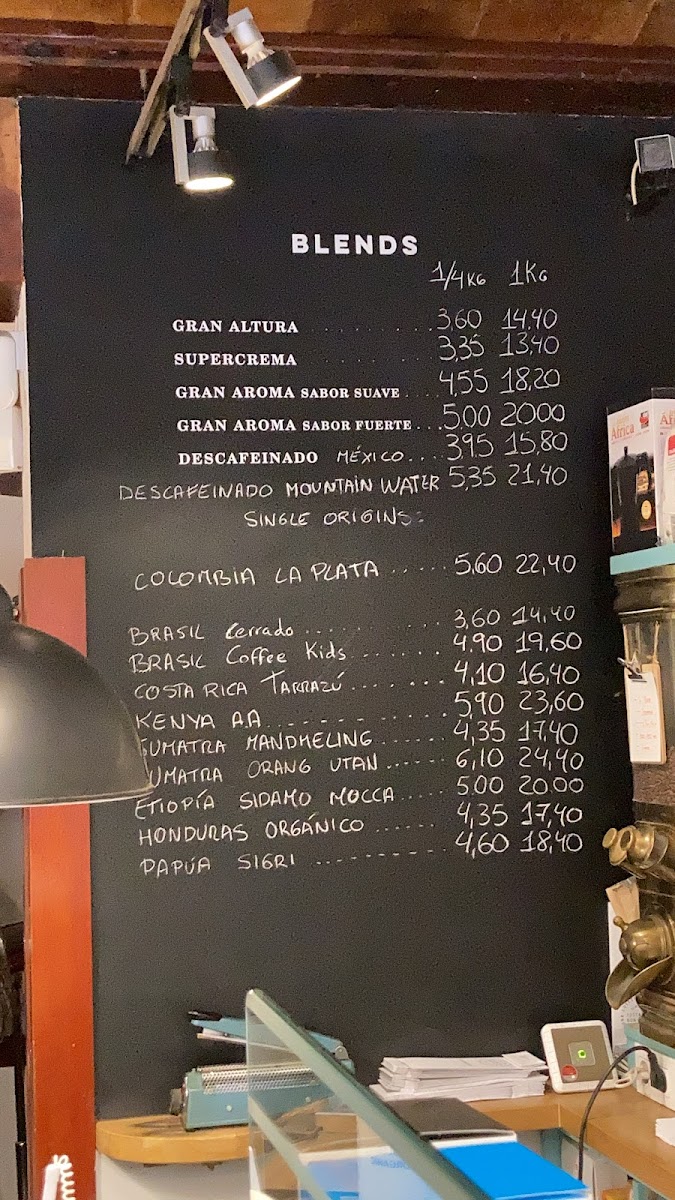 BLENDS
1/4KG 1KG
GRAN ALTURA ........ 3,60 14,40
SUPERCREMA ........ 3,35 13,40
GRAN AROMA SABOR SUAVE .... 4,55 18,20
GRAN AROMA SABOR FUERTE ... 5,00 20,00
DESCAFEINADO MÉXICO.... 3,95 15,80
DESCAFEINADO MOUNTAIN WATER 5,35 21,40
SINGLE ORIGINS:
COLOMBIA LA PLATA ...... 5,60 22,40
BRASIL Cerrado ........... 3,60 14,40
BRASIL Coffee Kids ........ 4,90 19,60
COSTA RICA TARRAZÚ ....... 4,10 16,40
KENYA AA ............ 5,90 23,60
SUMATRA MANDHELING ...... 4,35 17,40
SUMATRA ORANG UTAN ...... 6,10 24,40
ETIOPÍA SIDAMO MOCCA .... 5,00 20,00
HONDURAS ORGÁNICO ...... 4,35 17,40
PAPÚA SIGRI .......... 4,60 18,40
Africa